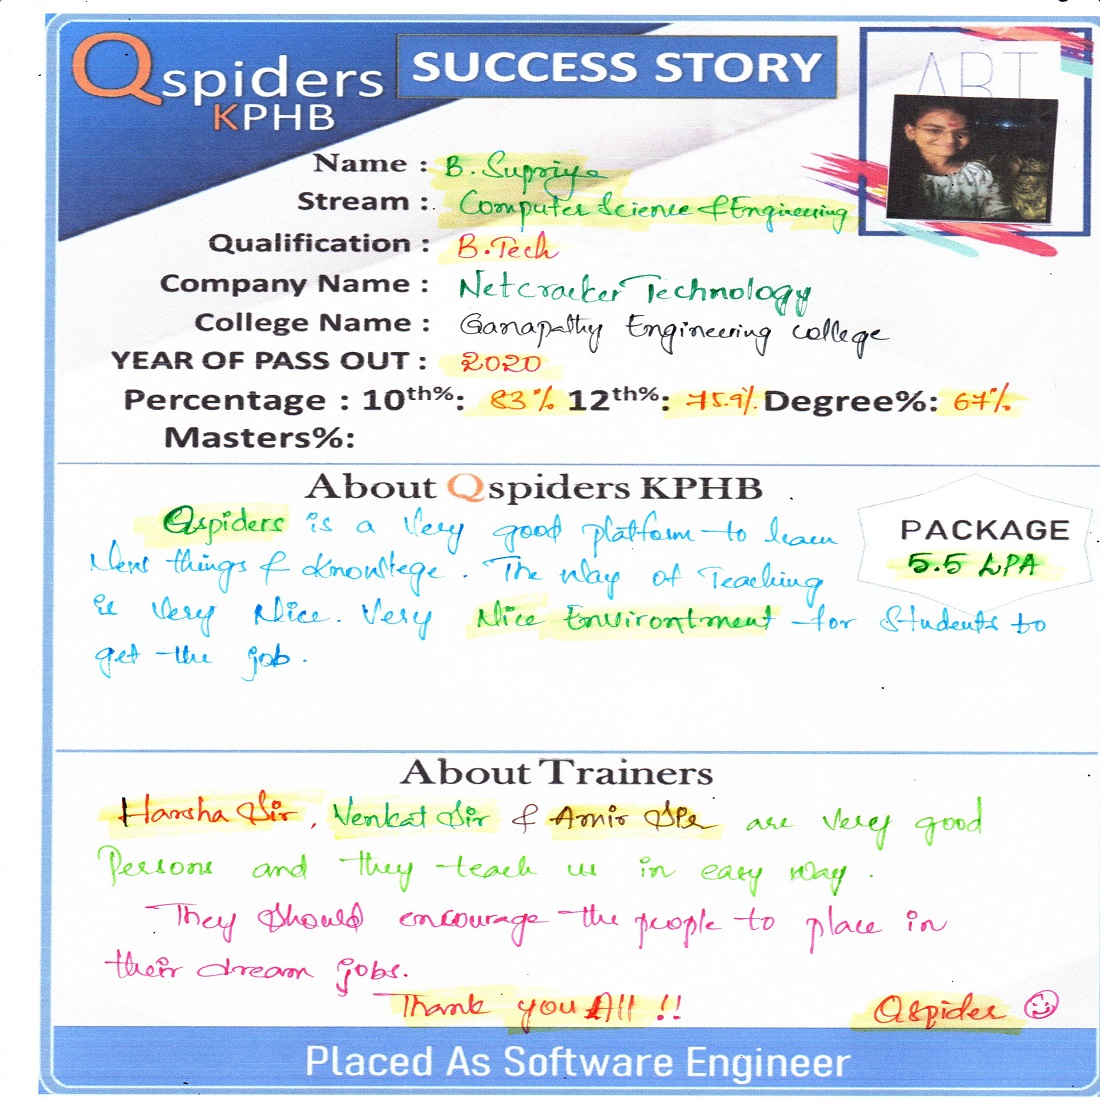 Qspiders
KPHB
SUCCESS STORY
ART
Name : B. Supriya
Stream : Computer Science & Engineering
Qualification : B.Tech
Company Name : Netcracker Technology
College Name : Ganapathy Engineering college
YEAR OF PASS OUT : 2020
Percentage : 10th%: 83% 12th%: 75.9% Degree%: 67%
Masters%:
About Qspiders KPHB
PACKAGE
5.5 LPA
Qspiders is a very good platform to learn
New things & knowltege. The way of Teaching
is very Nice. Very Nice Environtment for students to
get the job.
About Trainers
Harsha Sir, Venkat Sir & Amir Sir are very good
Persons and they teach us in easy way.
They should encourage the people to place in
their dream jobs.
Thank you All !!
Qspider
Placed As Software Engineer